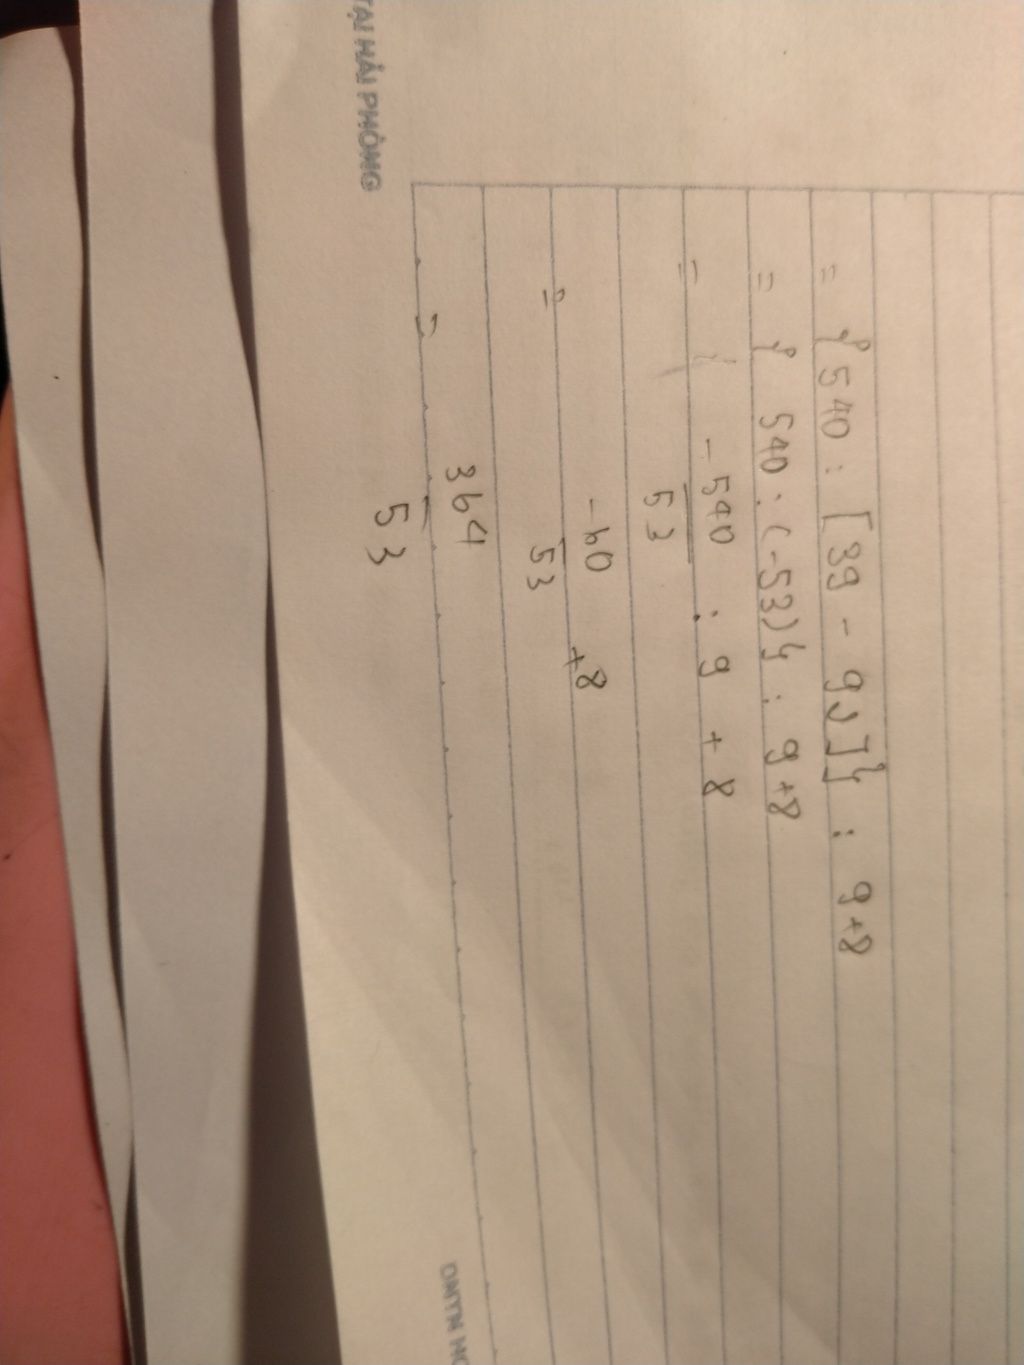 = { 540 : [ 39 - 92 ] } : 9 + 8
= { 540 : ( - 53 ) } : 9 + 8
= - 540 / 53 : 9 + 8
= - 60 / 53 + 8
= 364 / 53
TẠI HẢI PHÒNG